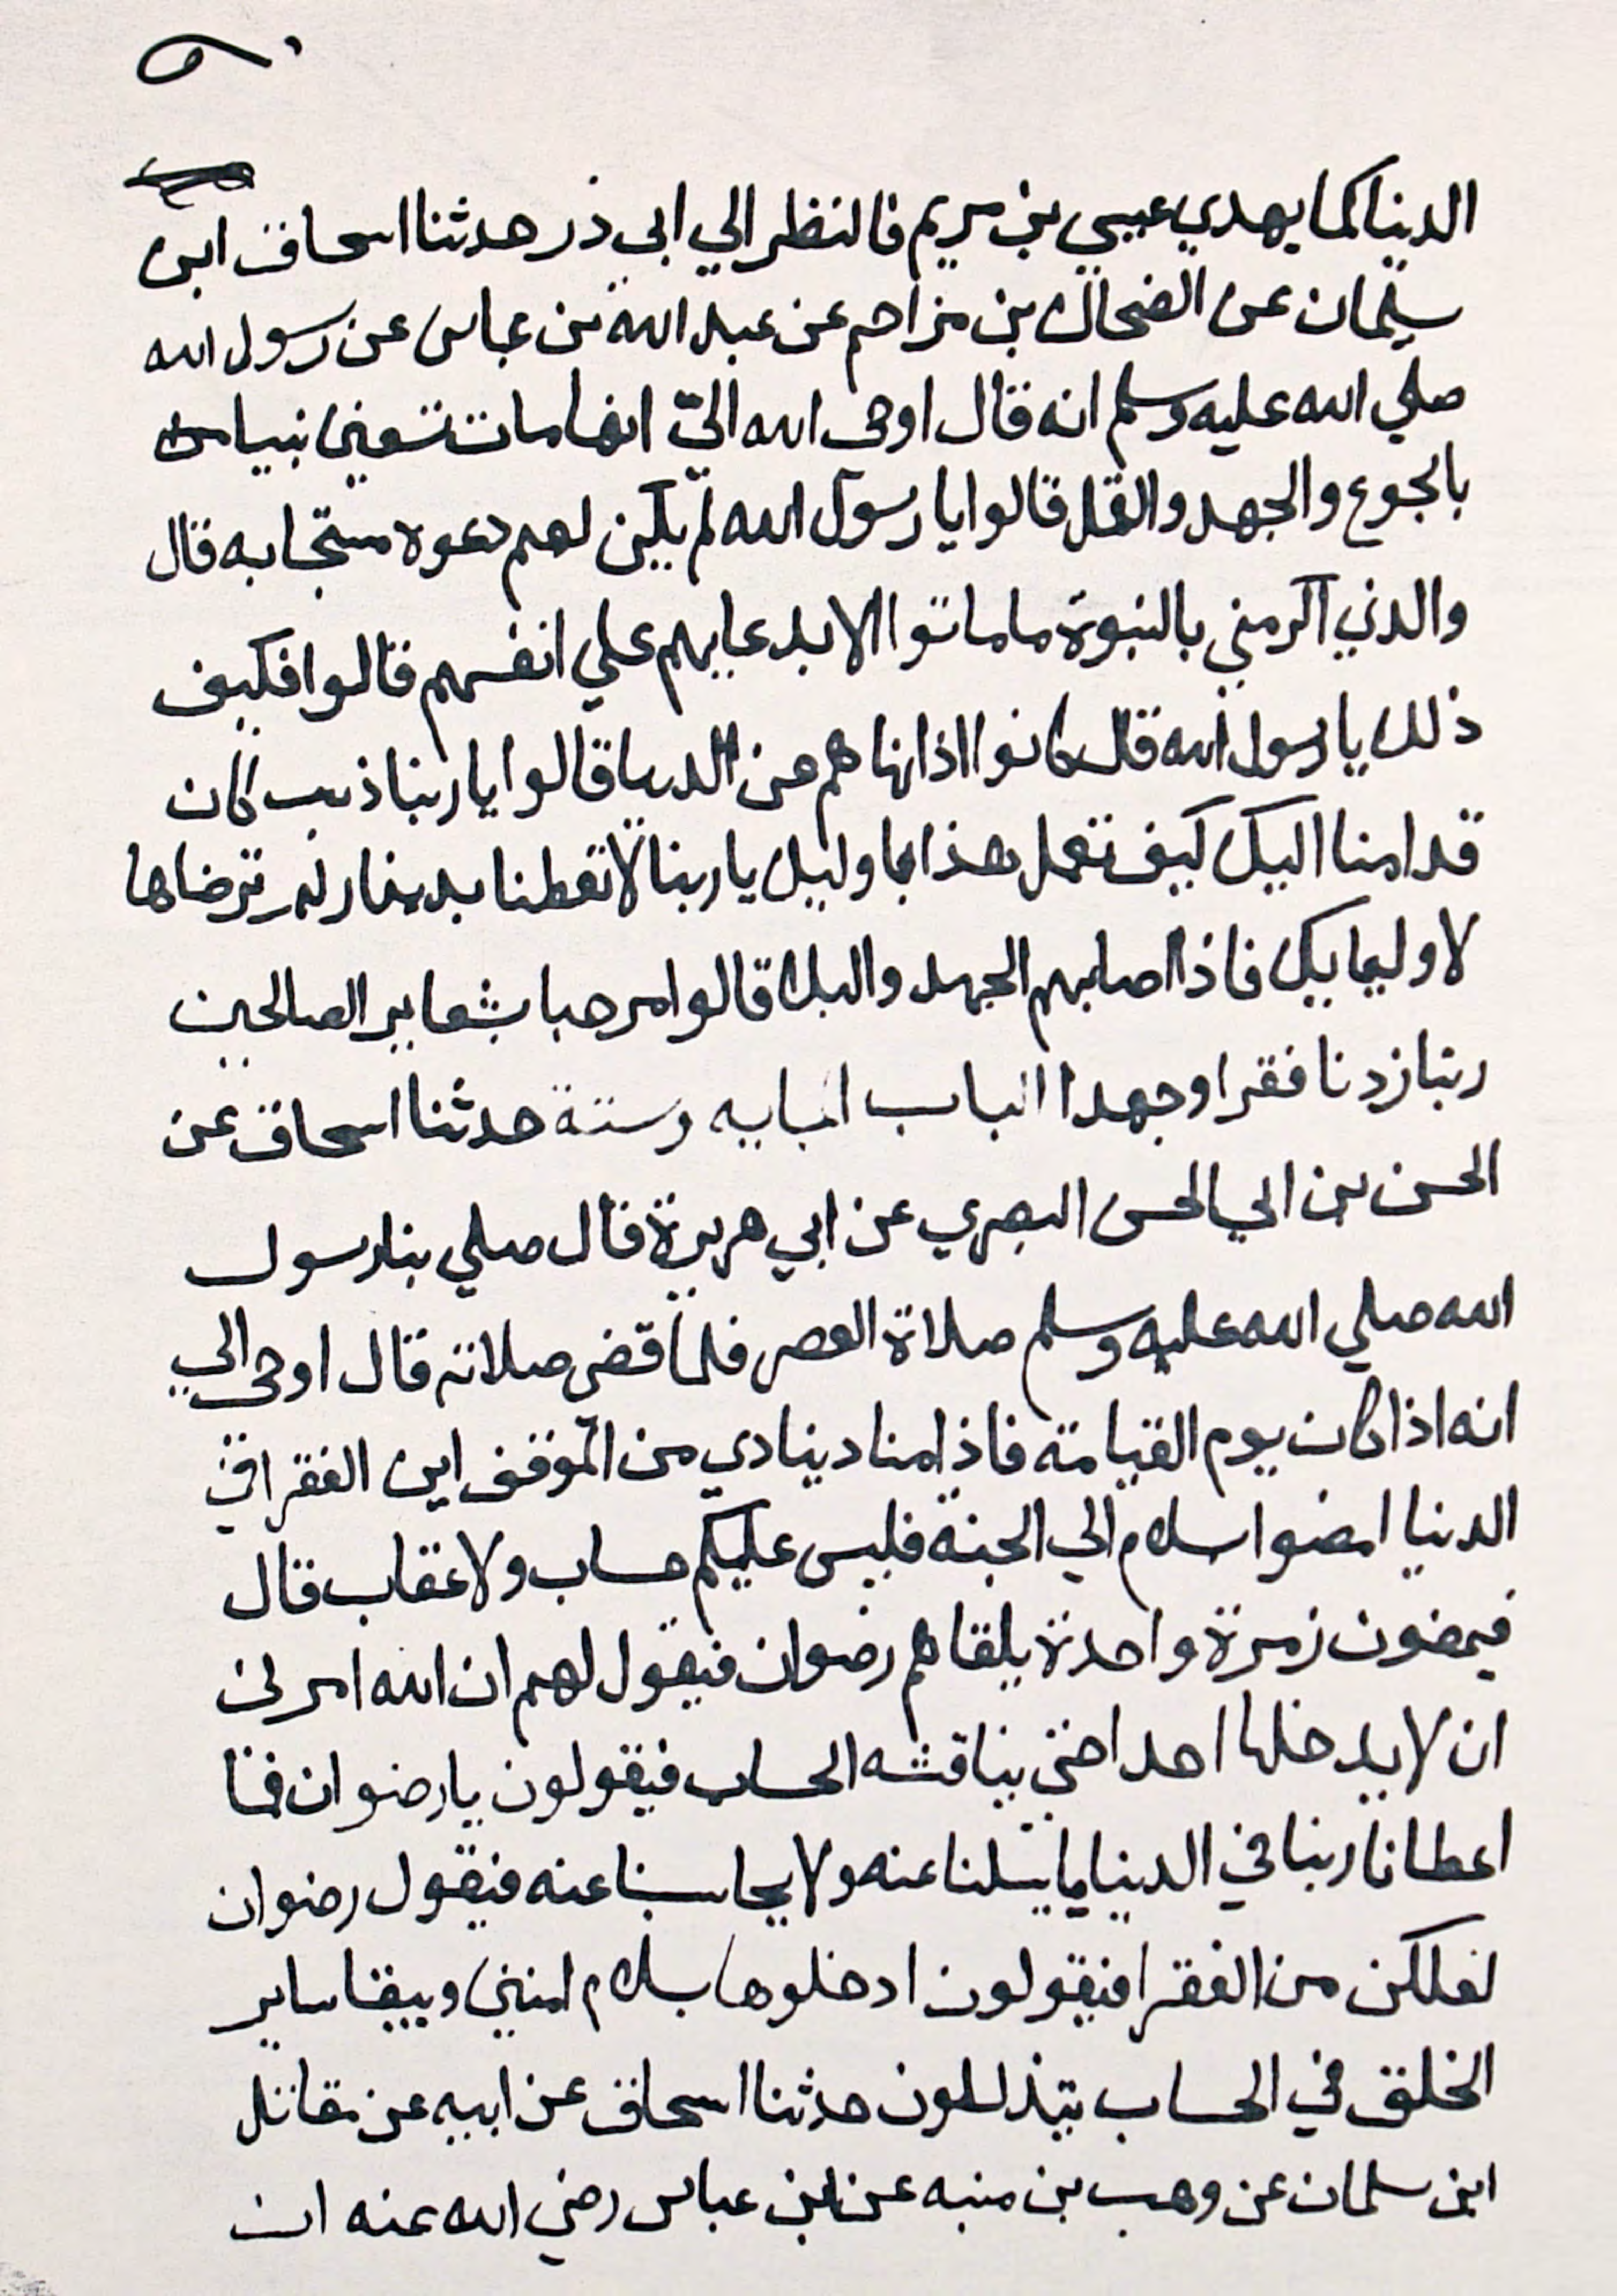 الدنيا كما يهدي عيسي بن مريم فالنظر الي ابي ذر حدثنا اسحاق ابن
سليمان عن الضحاك بن مزاحم عن عبد الله بن عباس عن رسول الله
صلي الله عليه وسلم انه قال اوحى الله اليّ انها مات تسعين نبيا من
بالجوع والجهد والقمل قالوا يا رسول الله لم يكن لهم دعوة مستجابه قال
والذي اكرمني بالنبوة ما ماتوا الا بدعايهم علي انفسهم قالوا فكيف
ذلك يا رسول الله قال كانوا اذا نهاهم عن الدنيا قالوا يا ربنا ذنب كان
قدامنا اليك كيف تفعل هذا باوليك يا ربنا لا تعطنا بدينار لم ترضاها
لاوليايك فاذا اصابهم الجهد والبلا قالوا مرحبا بشعاير الصالحين
ربنا زدنا فقرا وجهدا الباب المايه وستة حدثنا اسحاق عن
الحسن بن ابي الحسن البصري عن ابي هريرة قال صلي بنا رسول
الله صلي الله عليه وسلم صلاة العصر فلما قضى صلاته قال اوحى الي
انه اذا كان يوم القيامة فاذا مناد ينادي من الموقف اين الفقرا في
الدنيا امضوا بسلام الي الجنة فليس عليكم حساب ولا عقاب قال
فيمضون زمرة واحدة يلقاهم رضوان فيقول لهم ان الله امرني
ان لا يدخلها احدا حتي يناقشه الحساب فيقولون يا رضوان فما
اعطانا ربنا في الدنيا ما يسلنا عنه ولا يحاسبنا عنه فيقول رضوان
لعلكن من الفقرا فيقولون ادخلوها بسلام امنين ويبقا ساير
الخلق في الحساب يتذللون حدثنا اسحاق عن ابيه عن مقاتل
ابن سلمان عن وهب بن منبه عن ابن عباس رضي الله عنه ان